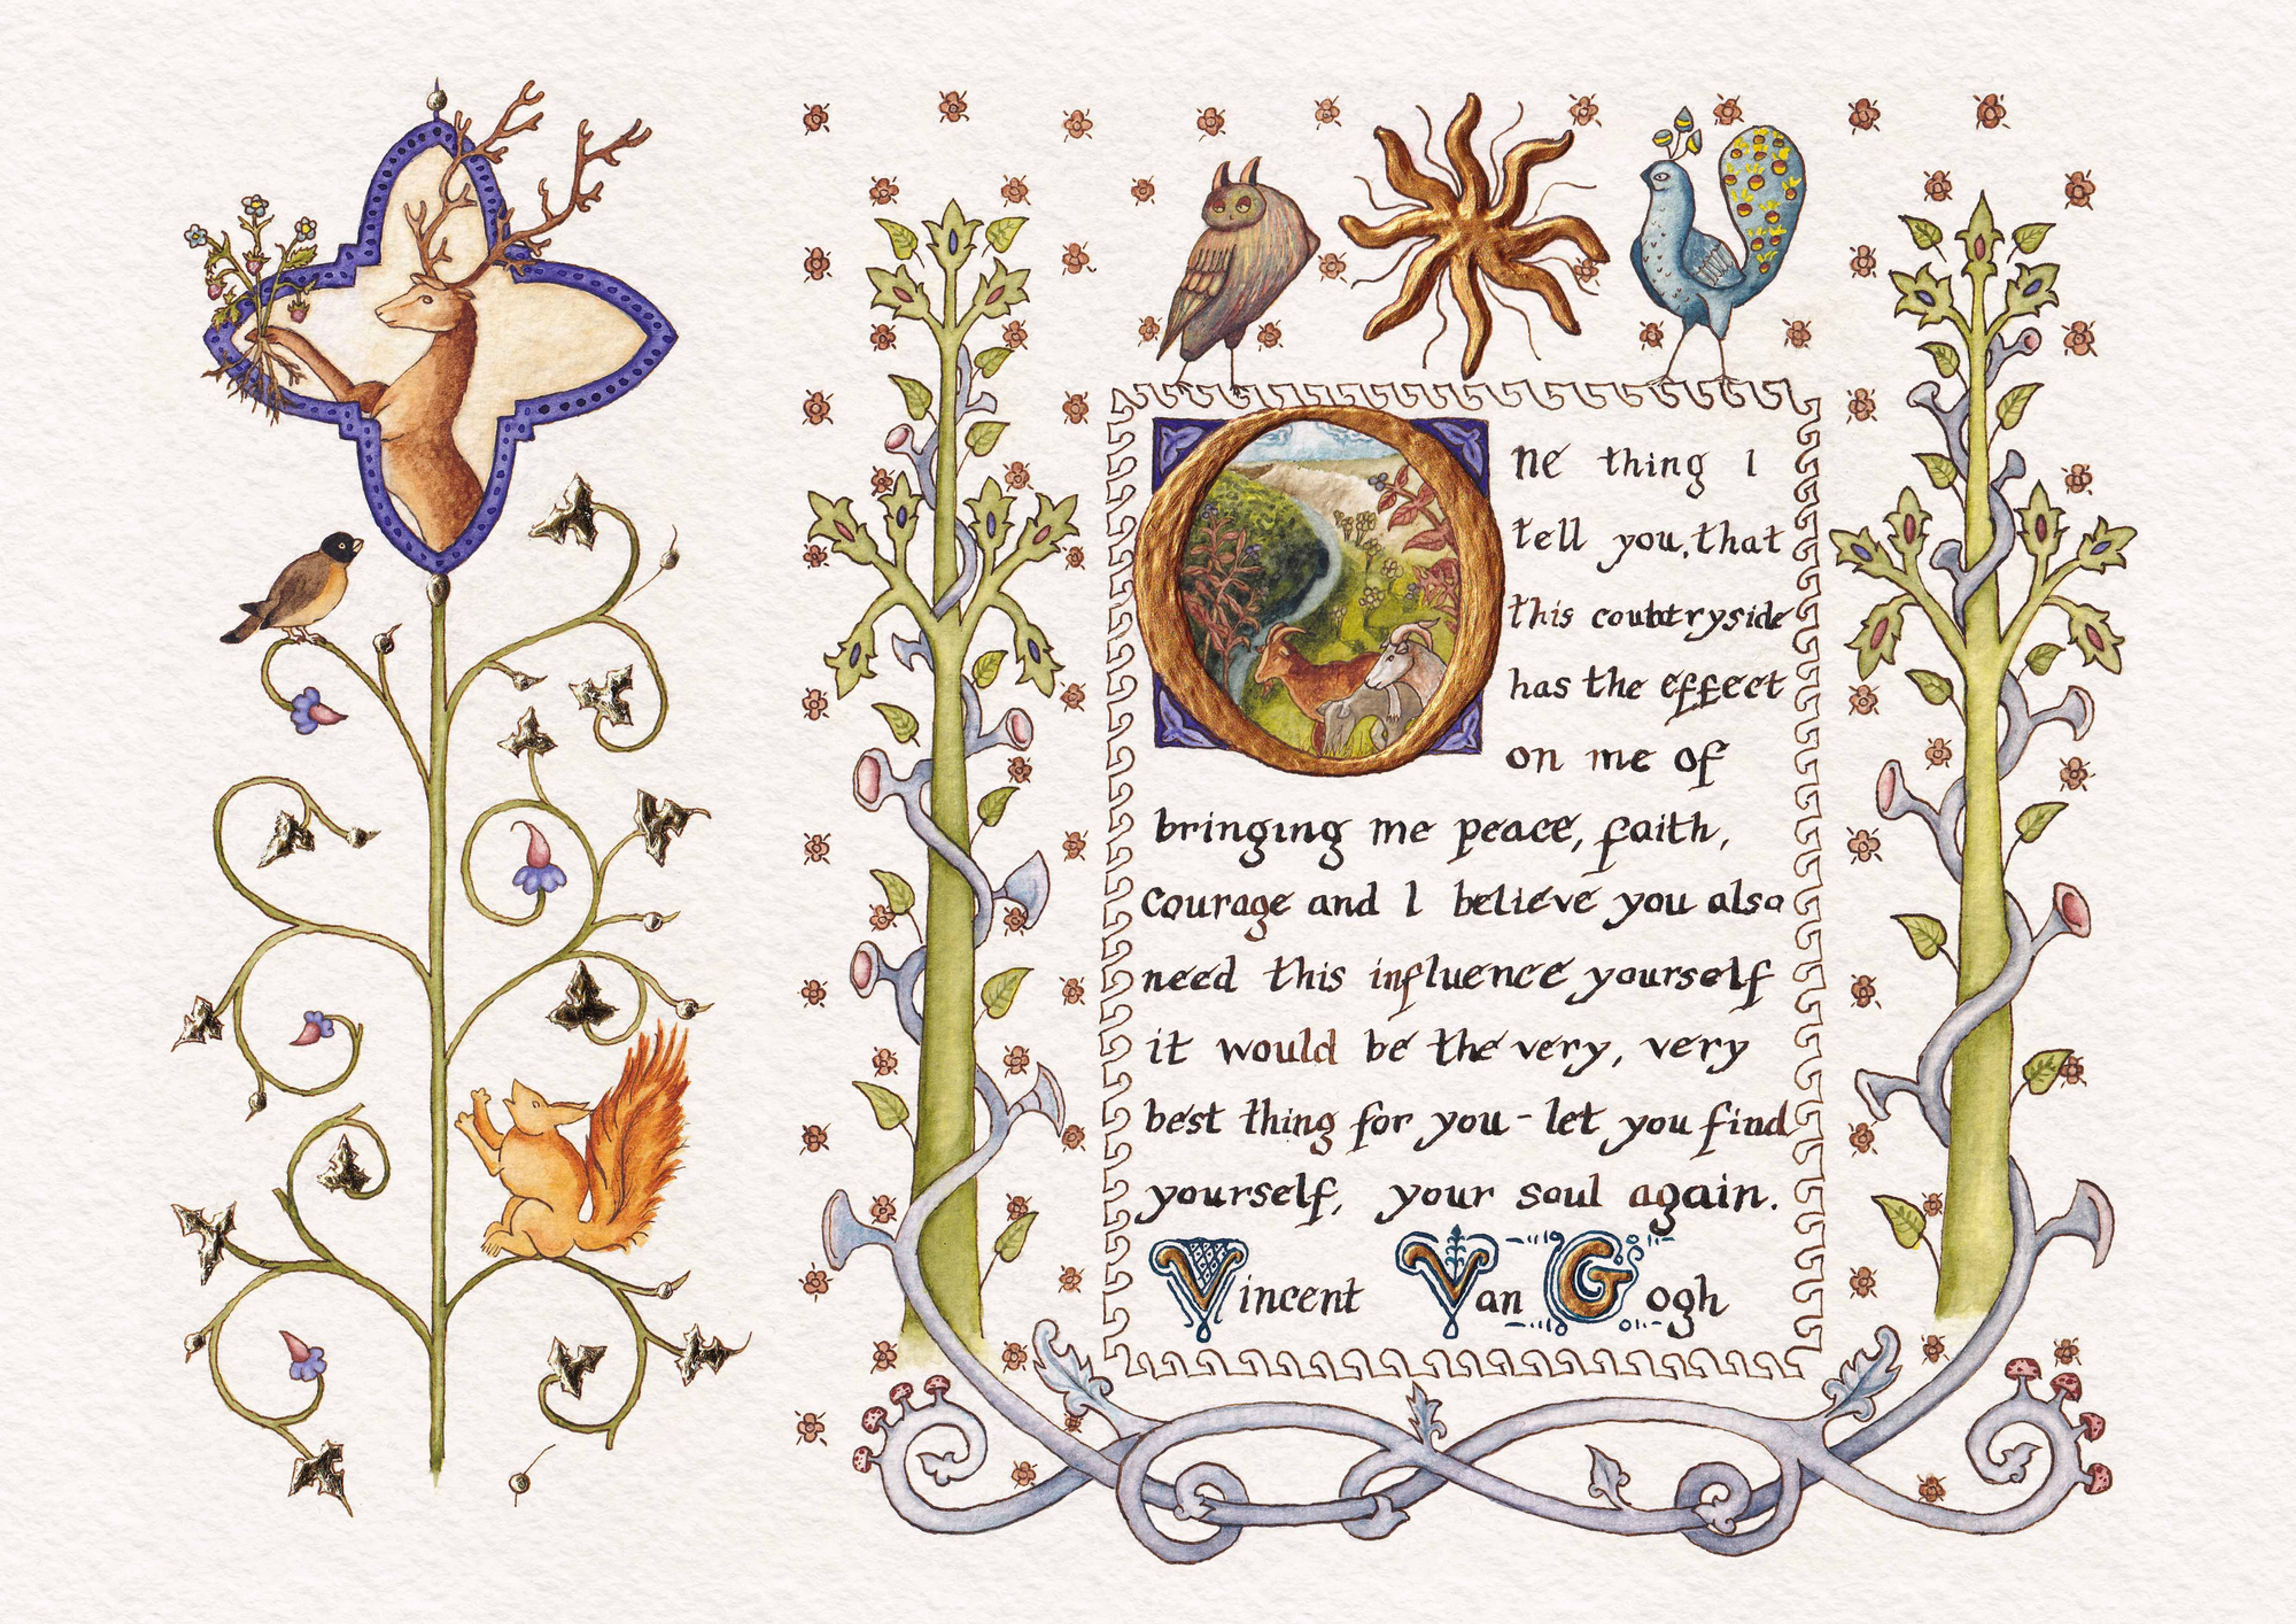 One thing I
tell you, that
this coubtryside
has the effect
on me of
bringing me peace, faith,
courage and I believe you also
need this influence yourself
it would be the very, very
best thing for you - let you find
yourself, your soul again.
Vincent Van Gogh